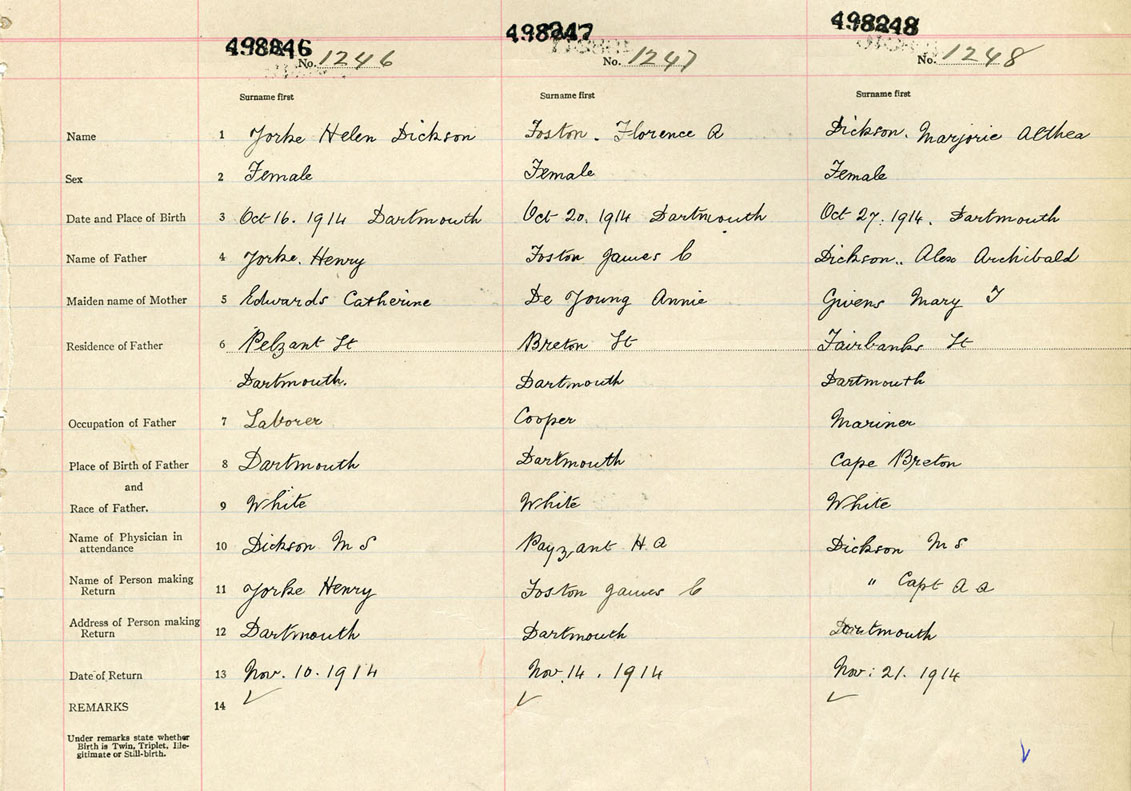 498246 498247 498248
No. 1246 No. 1247 No. 1248
Surname first Surname first Surname first
Name 1 Yorke Helen Dickson Foston. Florence A Dickson. Marjorie Althea
Sex 2 Female Female Female
Date and Place of Birth 3 Oct 16. 1914 Dartmouth Oct 20. 1914 Dartmouth Oct 27. 1914. Dartmouth
Name of Father 4 Yorke. Henry Foston James C Dickson.. Alex Archibald
Maiden name of Mother 5 Edwards Catherine De Young Annie Givens Mary J
Residence of Father 6 Pelzant St Breton St Fairbanks St
Dartmouth. Dartmouth Dartmouth
Occupation of Father 7 Laborer Cooper Mariner
Place of Birth of Father 8 Dartmouth Dartmouth Cape Breton
and
Race of Father. 9 White White White
Name of Physician in
attendance 10 Dickson M S Payzant H A Dickson M S
Name of Person making
Return 11 Yorke Henry Foston James C " Capt A A
Address of Person making
Return 12 Dartmouth Dartmouth Dartmouth
Date of Return 13 Nov. 10. 1914 Nov. 14. 1914 Nov: 21. 1914
REMARKS 14
Under remarks state whether
Birth is Twin, Triplet, Ille-
gitimate or Still-birth.